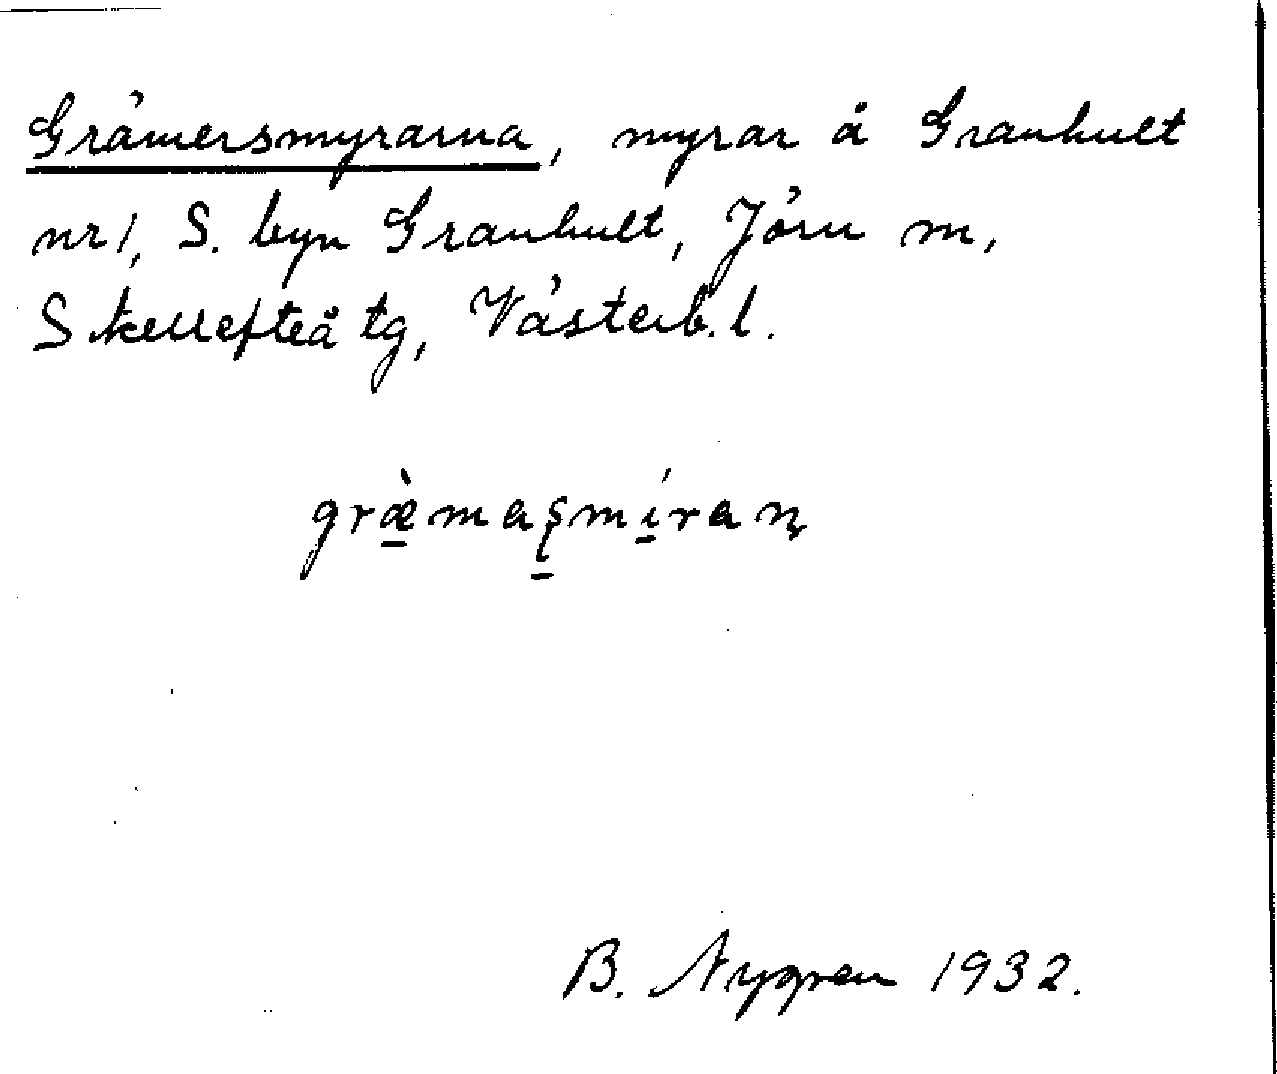 Grämersmyrarna, myrar å Granhult
nr 1, S. byn Granhult, Jörn sn,
Skellefteå tg, Västerb. l.
græ̀maʂmíraɳ
B. Nygren 1932.